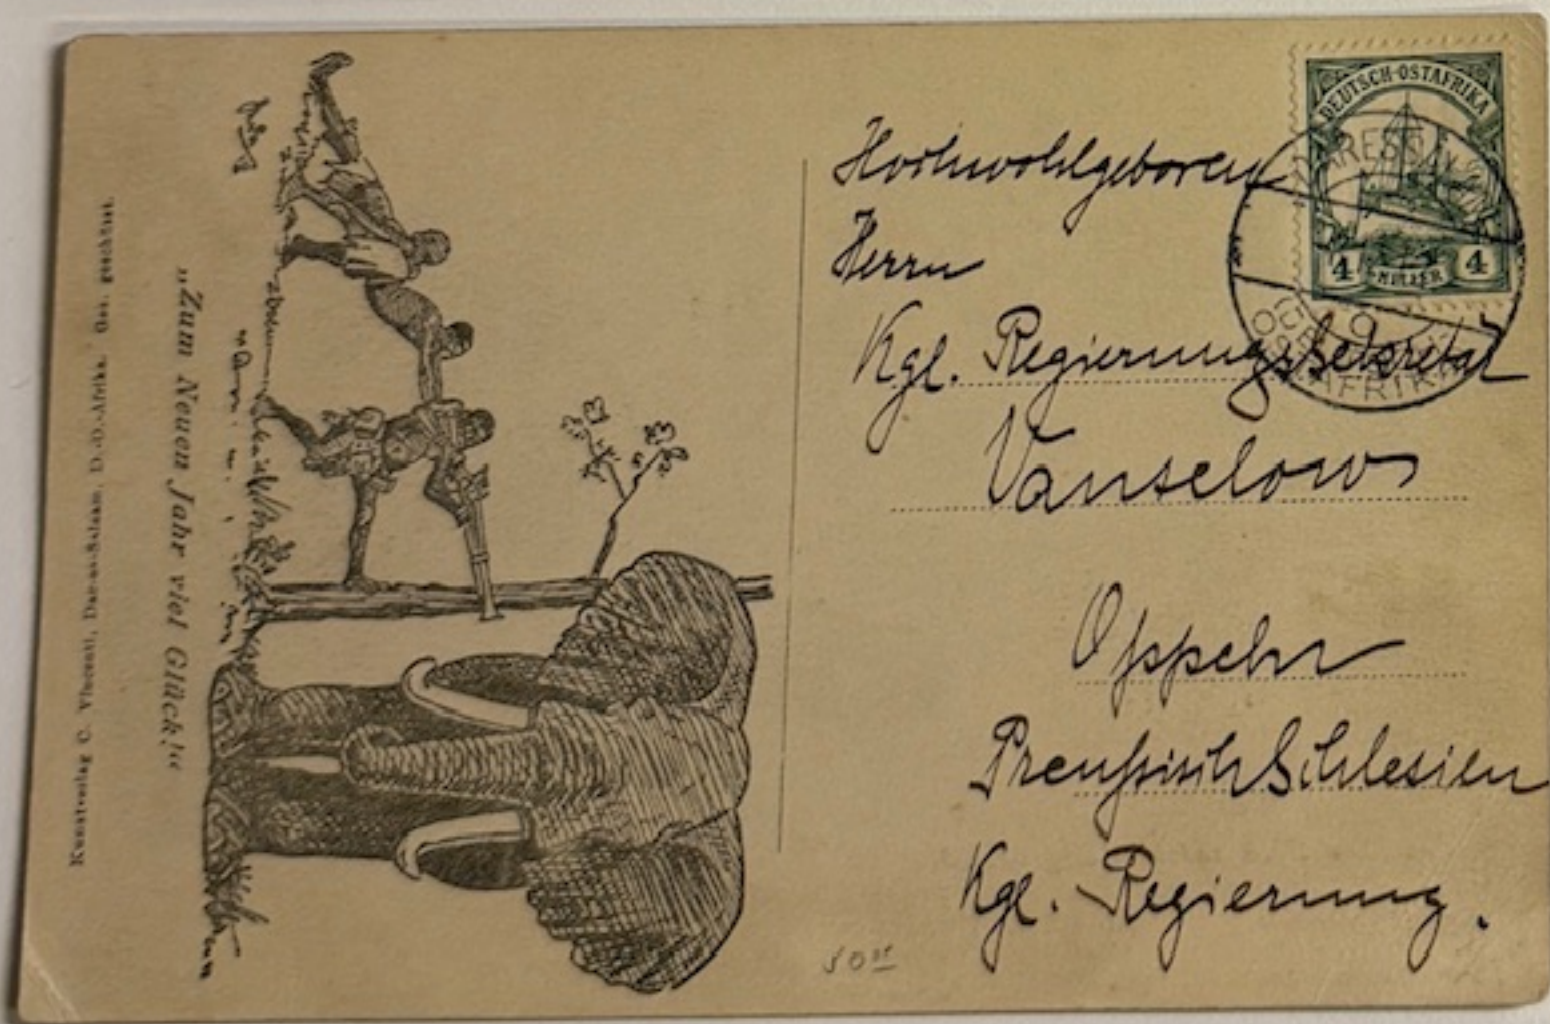 Kunstverlag C. Vincenti, Dar-es-Salaam, D.-O.-Afrika. Ges. geschützt.
„Zum Neuen Jahr viel Glück!“
DEUTSCH-OSTAFRIKA
4 HELLER 4
DARESSALAM
OSTAFRIKA
Hochwohlgeboren
Herrn
Kgl. Regierungssekretär
Vanselow
Oppeln
Preußisch Schlesien
Kgl. Regierung.